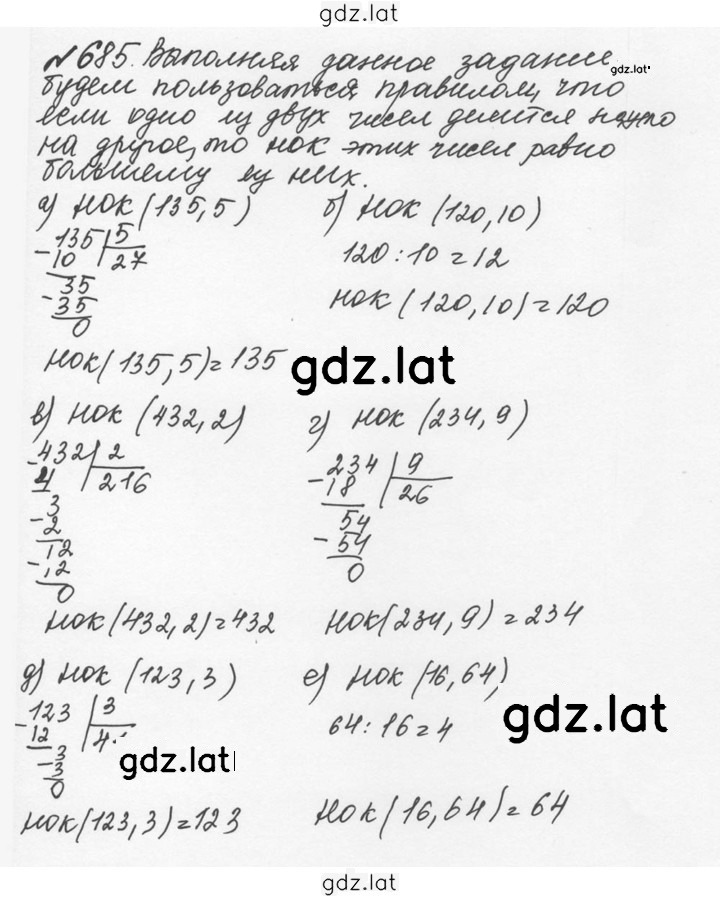 gdz.lat
№685. Выполняя данное задание,
gdz.lat
будем пользоваться правилом, что
если одно из двух чисел делится
на другое, то НОК этих чисел равно
большему из них.
а) НОК (135,5)
-135 5
10 27
-35
35
0
НОК(135,5)=135
б) НОК (120,10)
120:10=12
НОК (120,10)=120
gdz.lat
в) НОК (432,2)
-432 2
4 216
-3
2
-12
12
0
НОК(432,2)=432
г) НОК (234,9)
-234 9
18 26
-54
54
0
НОК(234,9)=234
д) НОК (123,3)
-123 3
12 4
-3
3
0
gdz.lat
НОК(123,3)=123
е) НОК (16,64)
64:16=4
gdz.lat
НОК (16,64)=64
gdz.lat